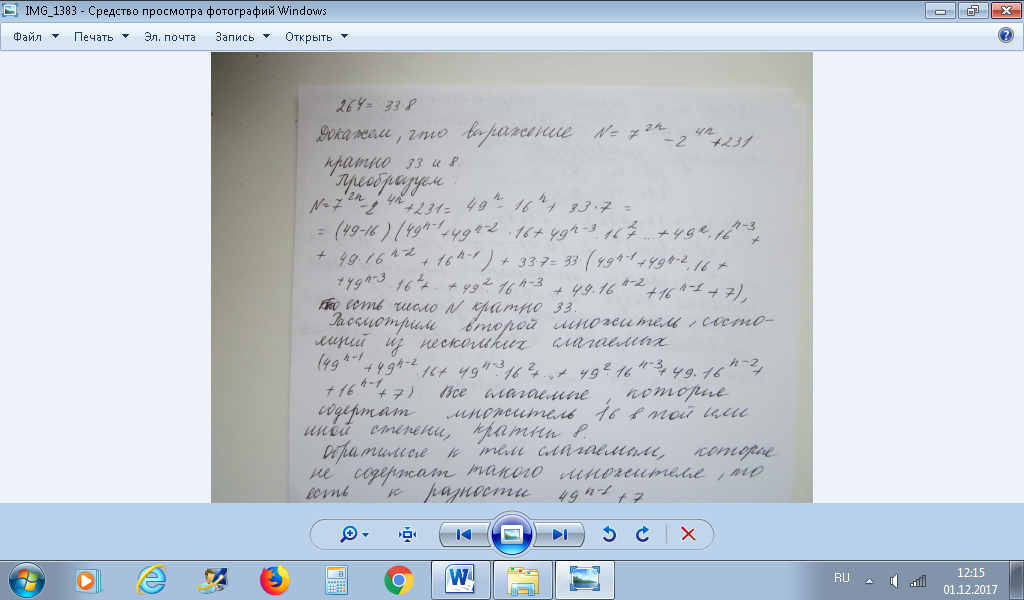 IMG_1383 - Средство просмотра фотографий Windows
Файл Печать Эл. почта Запись Открыть
264 = 33·8
Докажем, что выражение N = 7²ⁿ - 2⁴ⁿ + 231
кратно 33 и 8.
Преобразуем:
N = 7²ⁿ - 2⁴ⁿ + 231 = 49ⁿ - 16ⁿ + 33·7 =
= (49-16) (49ⁿ⁻¹ + 49ⁿ⁻² · 16 + 49ⁿ⁻³ · 16² + ... + 49² · 16ⁿ⁻³ +
+ 49·16ⁿ⁻² + 16ⁿ⁻¹) + 33·7 = 33·(49ⁿ⁻¹ + 49ⁿ⁻² · 16 +
+ 49ⁿ⁻³ · 16² + ... + 49² · 16ⁿ⁻³ + 49·16ⁿ⁻² + 16ⁿ⁻¹ + 7),
то есть число N кратно 33.
Рассмотрим второй множитель, состо-
ящий из нескольких слагаемых
(49ⁿ⁻¹ + 49ⁿ⁻² · 16 + 49ⁿ⁻³ · 16² + ... + 49² · 16ⁿ⁻³ + 49·16ⁿ⁻² +
+ 16ⁿ⁻¹ + 7). Все слагаемые, которые
содержат множитель 16 в той или
иной степени, кратны 8.
Обратимся к тем слагаемым, которые
не содержат такого множителя, то
есть к разности 49ⁿ⁻¹ + 7
RU 12:15
01.12.2017